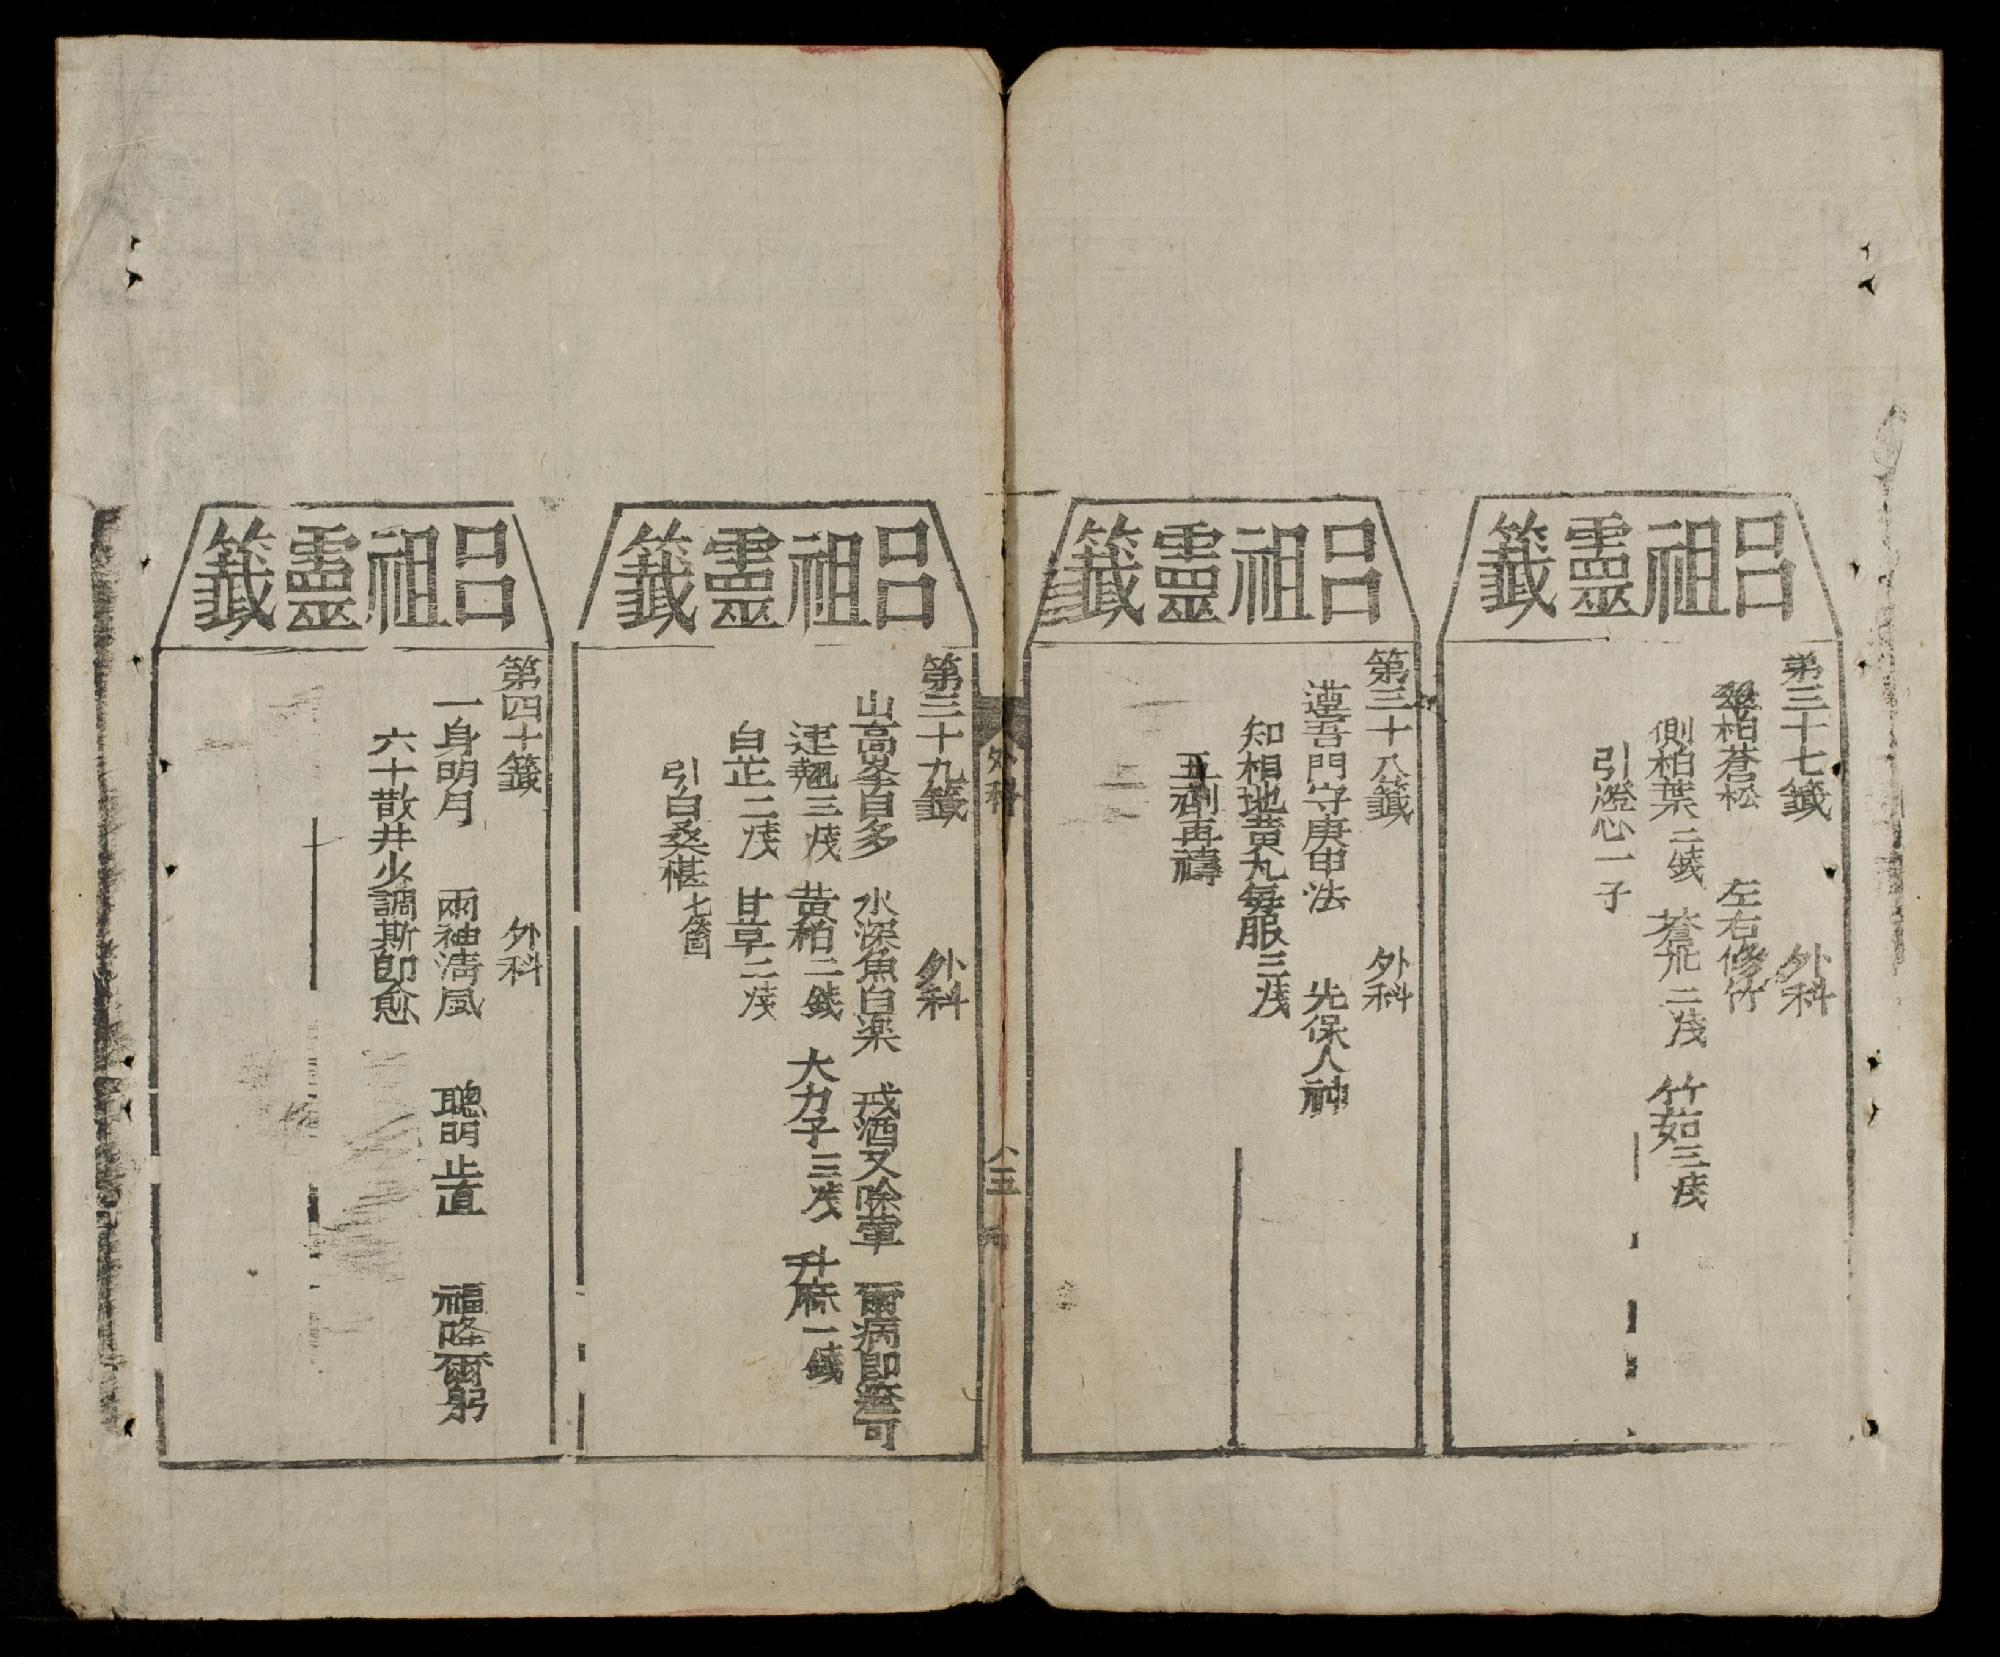 呂祖靈籤
第三十七籤 外科
翠柏蒼松 左右修竹
側柏葉二錢 蒼朮二淺 竹茹三淺
引燈心一子
呂祖靈籤
第三十八籤 外科
遵吾門守庚申法 先保人神
知柏地黃丸每服三淺
五劑再禱
外科
八五
呂祖靈籤
第三十九籤 外科
山高峯自多 水深魚自樂 戒酒又除葷 爾病即痊可
連翹三淺 黃柏二錢 大力子三淺 升麻一錢
白芷二淺 甘草二淺
引白桑椹七箇
呂祖靈籤
第四十籤 外科
一身明月 兩袖清風 聰明正直 福降爾躬
六十散丼少調斯即愈